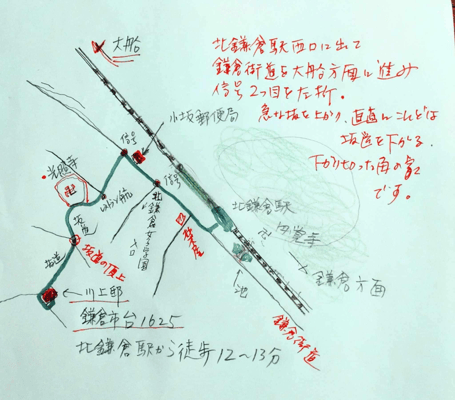 大船
北鎌倉駅西口に出て
鎌倉街道を大船方面に進み
信号2つ目を左折。
急な坂を上がり、直直にこんどは
坂道を下がる。
下がり切った角の家
です。
小坂郵便局
信号
信号
光照寺
卍
北鎌倉女子学園
入口
北鎌倉駅
円覚寺
池
鎌倉方面
鎌倉街道
坂道
坂道の頂上
坂道
川上邸
鎌倉市台1625
北鎌倉駅から徒歩12〜13分